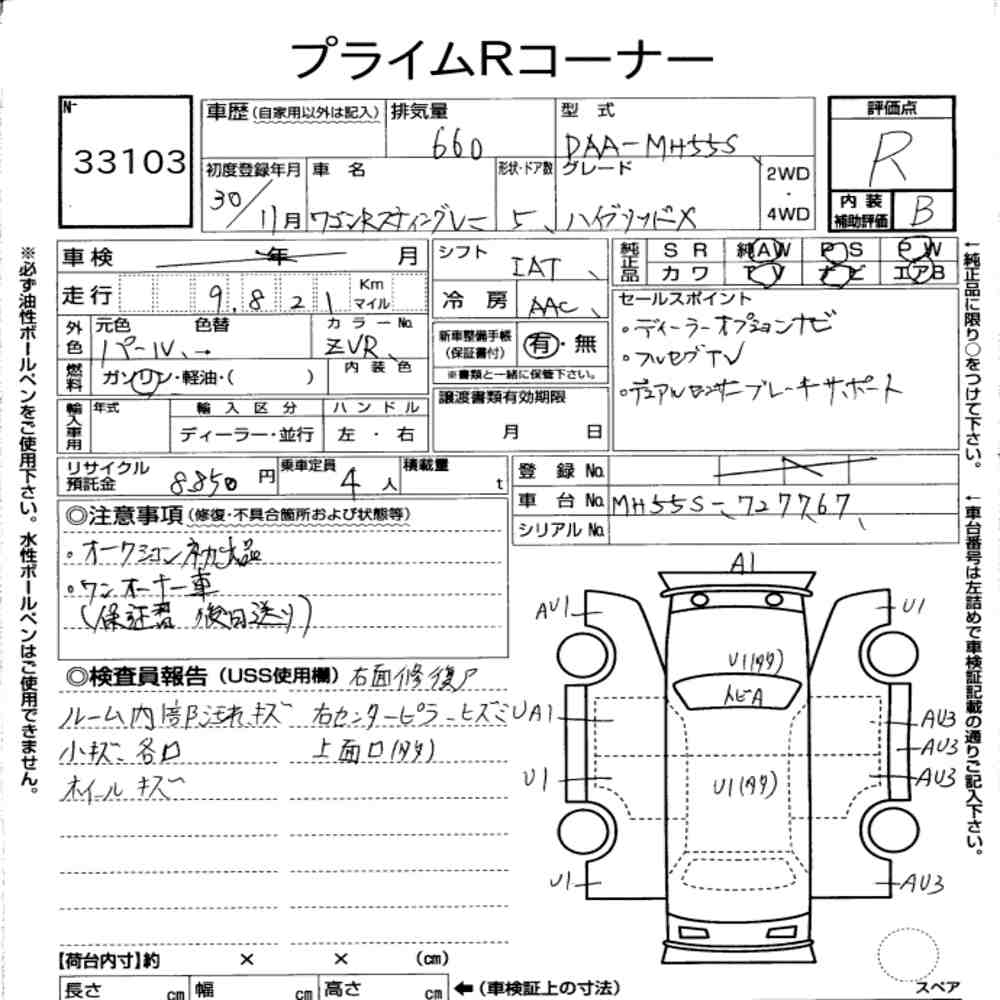 プライムRコーナー
N-
33103
車歴(自家用以外は記入)
排気量
660
型 式
DAA-MH55S
評価点
R
初度登録年月
30/11月
車 名
ワゴンRスティングレー
形状・ドア数
5
グレード
ハイブリッドX
2WD
・
4WD
内 装
補助評価
B
※必ず油性ボールペンをご使用下さい。水性ボールペンはご使用できません。
車検
年
月
シフト
IAT
純正品
SR
純AW
PS
PW
カワ
TV
ナビ
エアB
走行
9.821
Km
マイル
冷 房
AAC
セールスポイント
・ディーラーオプションナビ
・フルセグTV
・デュアルセンサーブレーキサポート
外色
元色
色替
パール
→
カラーNo.
ZVR
新車整備手帳
(保証書付)
有・無
※書類と一緒に保管下さい。
燃料
ガソリン・軽油・( )
内装色
譲渡書類有効期限
月 日
輸入車用
年式
輸入区分
ディーラー・並行
ハンドル
左・右
リサイクル
預託金
8850円
乗車定員
4人
積載量
t
登 録 No.
車 台 No.
MH55S-727767
シリアル No.
◎注意事項(修復・不具合箇所および状態等)
・オークション初出品
・ワンオーナー車
(保証書 後日送り)
◎検査員報告(USS使用欄)
右面修復ア
ルーム内部汚れキズ
右センターピラーヒズミ
小キズ、各口
上面口(タタ)
ホイールキズ
A1
AU1
U1
U1(タタ)
トビA
UA1
AU3
AU3
U1
AU3
U1(タタ)
U1
AU3
スペア
【荷台内寸】約 × × (cm)
長さ cm
幅 cm
高さ cm
←(車検証上の寸法)
↑純正品に限り○をつけて下さい。
↑車台番号は左詰めで車検証記載の通りご記入下さい。